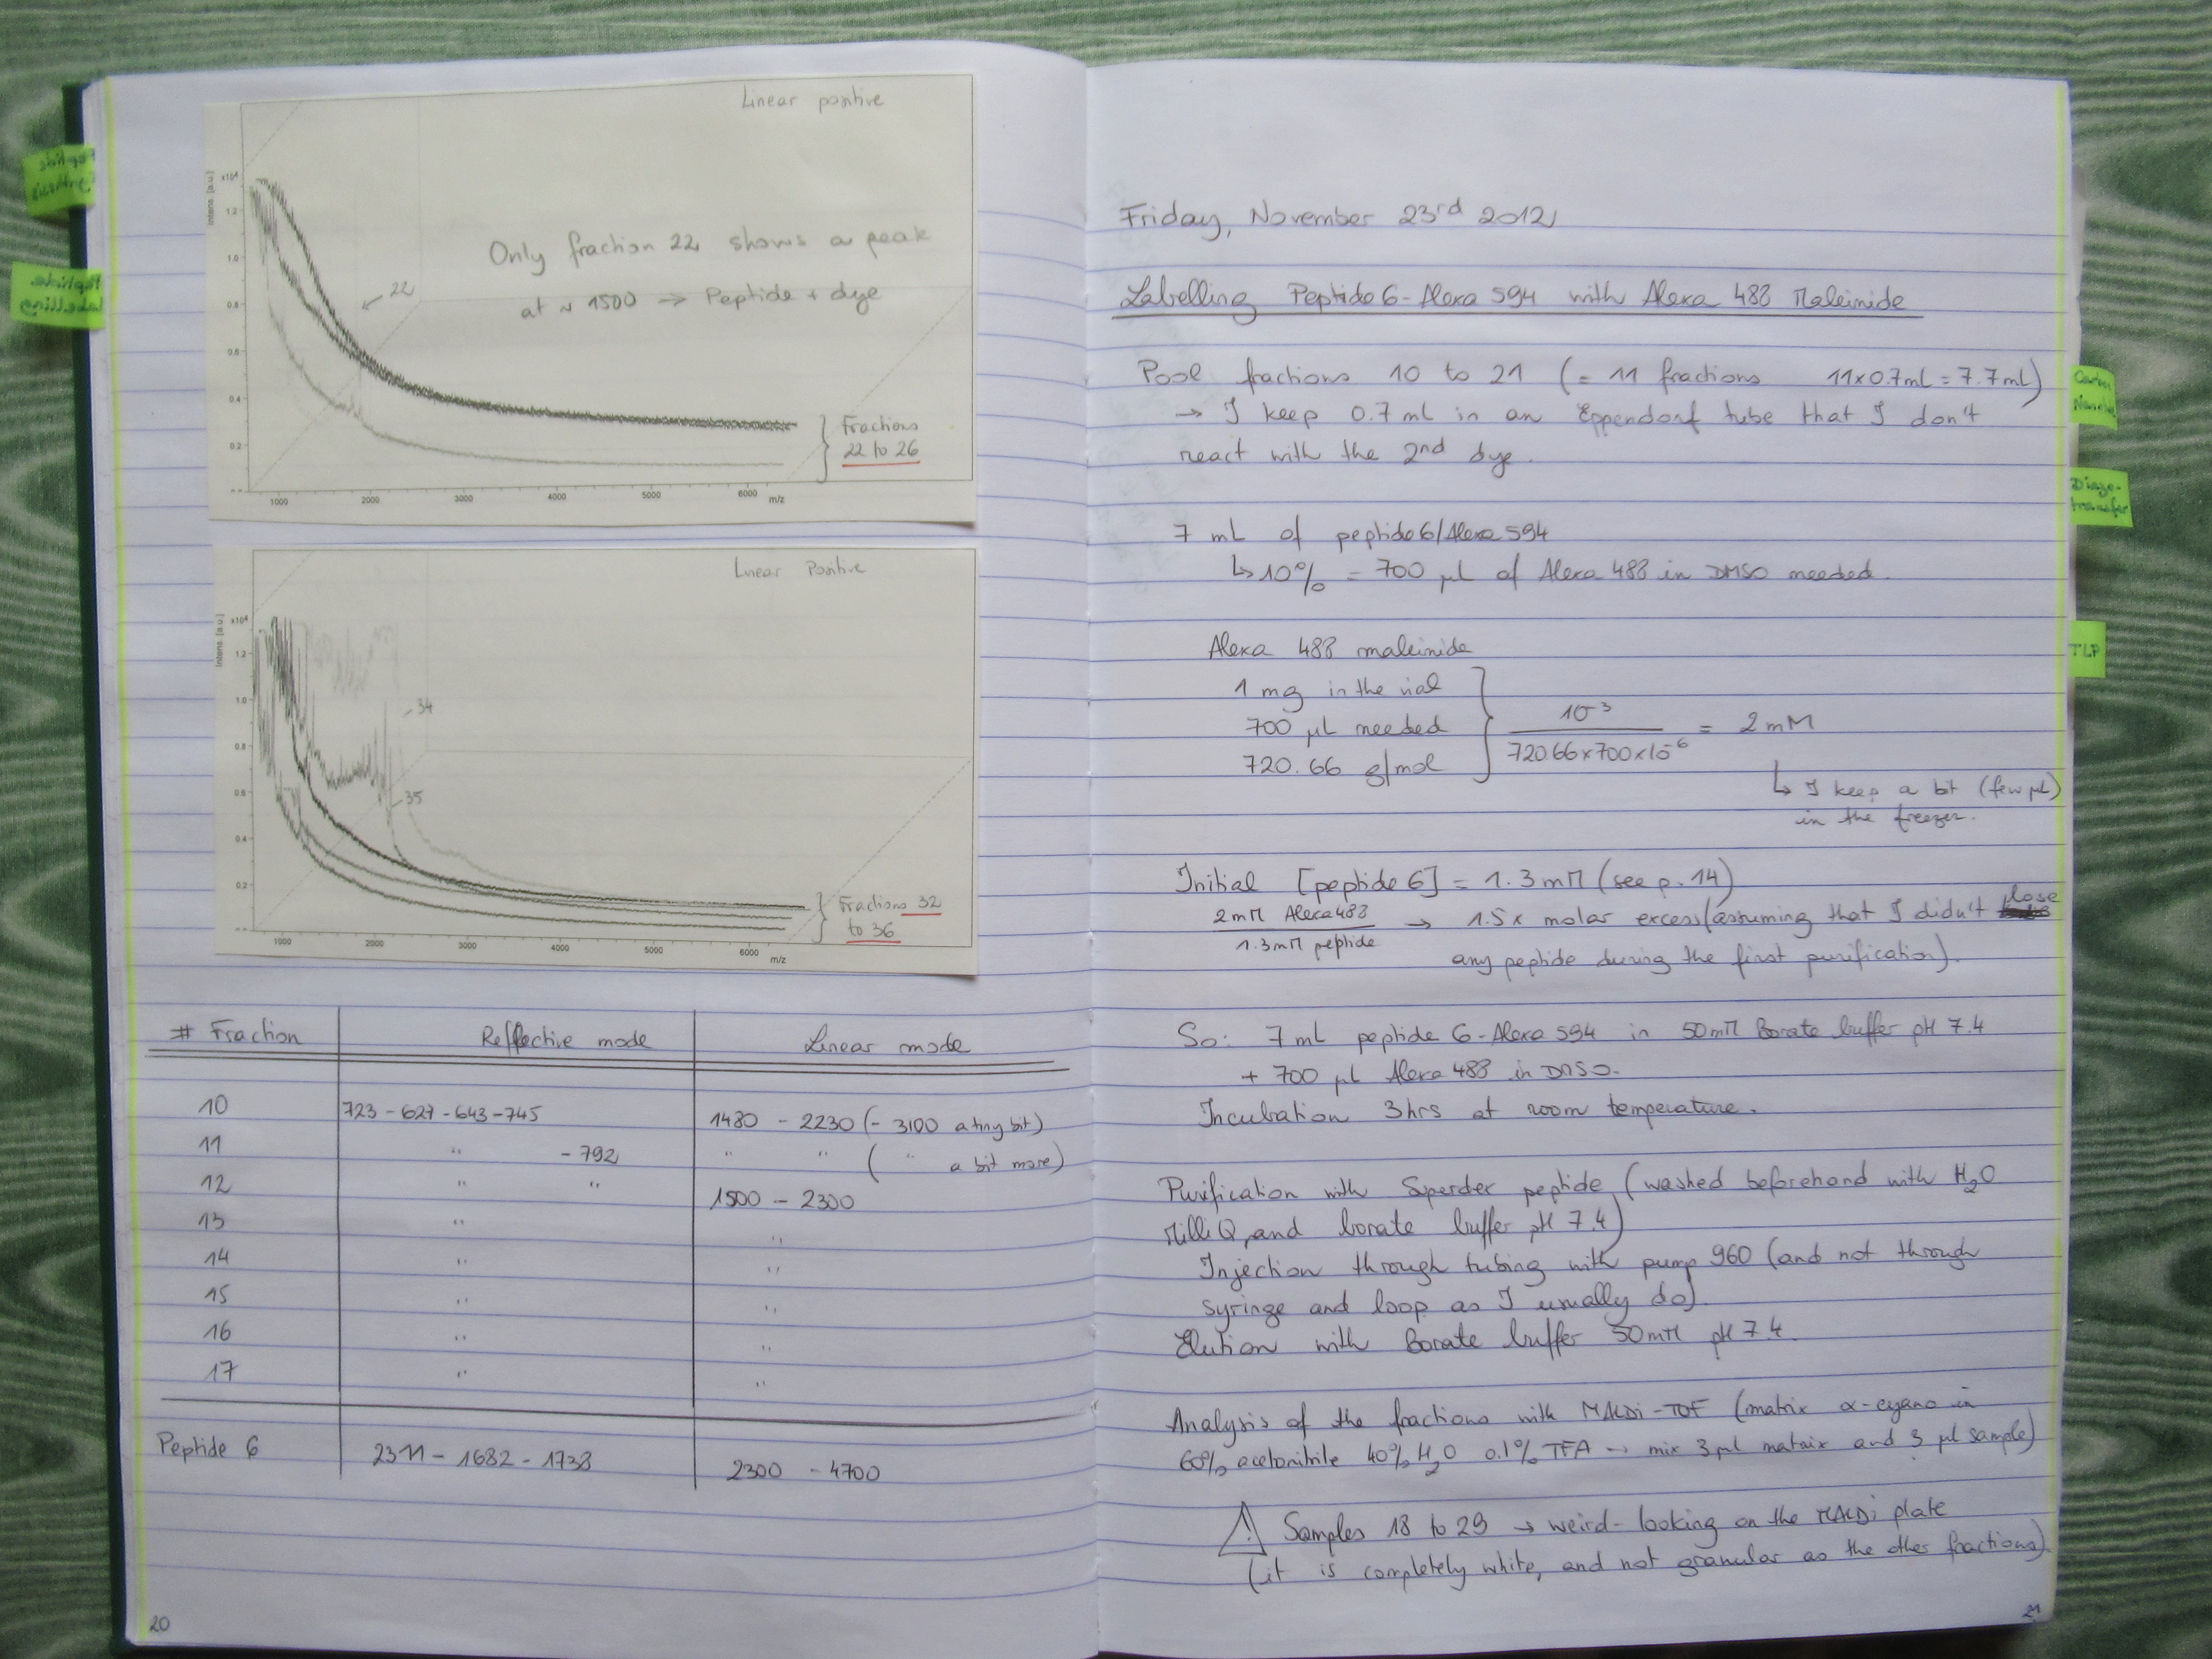 Linear positive
Intens. [a.u.]
x10⁴
1.2
1.0
0.8
0.6
0.4
0.2
Only fraction 22 shows a peak
at ~ 1500 → Peptide + dye
22
Fractions
22 to 26
1000 2000 3000 4000 5000 6000 m/z
Linear Positive
Intens. [a.u.]
x10⁴
1.2
1.0
0.8
0.6
0.4
0.2
34
35
Fractions 32
to 36
1000 2000 3000 4000 5000 6000 m/z
# Fraction Reflective mode Linear mode
10 723 - 627 - 643 - 745 1480 - 2230 (- 3100 a tiny bit)
11 " - 792 " " ( " a bit more)
12 " " 1500 - 2300
13 " "
14 " "
15 " "
16 " "
17 " "
Peptide 6 2311 - 1682 - 1738 2300 - 4700
20
Peptide
Synthesis
Peptide
labelling
Friday, November 23rd 2012
Labelling Peptide 6 - Alexa 594 with Alexa 488 Maleimide
Pool fractions 10 to 21 (= 11 fractions 11x0.7mL = 7.7mL)
→ I keep 0.7 mL in an Eppendorf tube that I don't
react with the 2nd dye.
7 mL of peptide 6/Alexa 594
↳ 10% = 700 µL of Alexa 488 in DMSO needed.
Alexa 488 maleimide
1 mg in the vial
700 µL needed
720.66 g/mol
10⁻³ / 720.66 x 700 x 10⁻⁶ = 2 mM
↳ I keep a bit (few µL)
in the freezer.
Initial [peptide 6] = 1.3mM (see p. 14)
2mM Alexa 488 / 1.3mM peptide → 1.5x molar excess (assuming that I didn't lose
any peptide during the first purification).
So: 7 mL peptide 6 - Alexa 594 in 50mM Borate buffer pH 7.4
+ 700 µL Alexa 488 in DMSO.
Incubation 3hrs at room temperature.
Purification with Superdex peptide (washed beforehand with H₂O
MilliQ, and borate buffer pH 7.4)
Injection through tubing with pump 960 (and not through
syringe and loop as I usually do)
Elution with Borate buffer 50mM pH 7.4.
Analysis of the fractions with MALDi-TOF (matrix α-cyano in
60% acetonitrile 40% H₂O 0.1% TFA → mix 3 µl matrix and 3 µl sample)
⚠ Samples 18 to 29 → weird-looking on the MALDi plate
(it is completely white, and not granular as the other fractions)
21
Diazo-
transfer
TLP